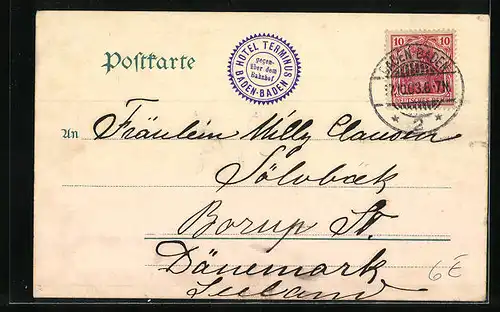 Postkarte
HOTEL TERMINUS
gegen-
über dem
Bahnhof
BADEN-BADEN
10 10
BADEN-BADEN
* 2 *
An Fräulein Willy Clausen
Sölvbæk
Borup St.
Dänemark
Seeland
6 £